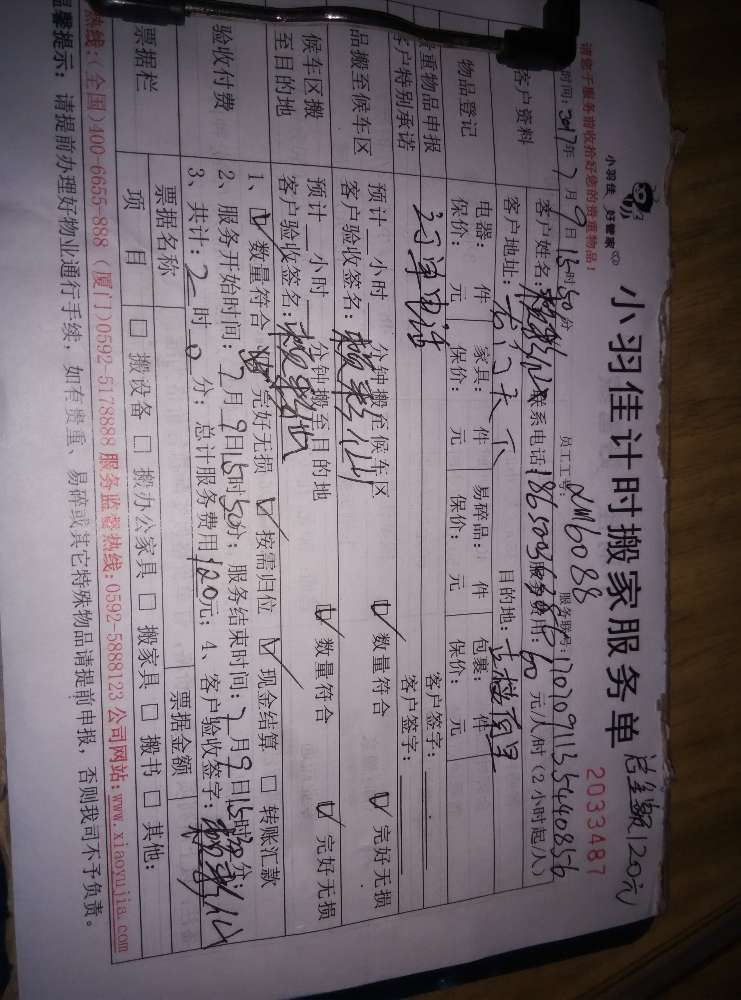 小羽佳 好管家
小羽佳计时搬家服务单
总金额120元
2033487
请您于服务前收拾好您的贵重物品!
员工工号:
服务联号:
时间:2017年7月9日13时50分
客户资料
客户姓名:
联系电话:
服务费用:60元/人/时(2小时起/人)
客户地址:
目的地:
物品登记
电器: 件 家具: 件 易碎品: 件 包裹: 件
保价: 元 保价: 元 保价: 元 保价: 元
贵重物品申报 客户签字:
客户特别承诺 订单电话 客户签字:
物品搬至候车区
预计 小时 分钟搬至候车区 数量符合 完好无损
客户验收签名:
候车区搬至目的地
预计 小时 分钟搬至目的地 数量符合 完好无损
客户验收签名:
验收付费
1、数量符合 完好无损 按需归位 现金结算 转账汇款
2、服务开始时间:7月9日13时50分; 服务结束时间:7月9日15时50分;
3、共计:2时0分; 总计服务费用120元; 4、客户验收签字:
票据栏
票据名称 票据金额
项目 搬设备 搬办公家具 搬家具 搬书 其他:
热线:(全国)400-6655-888 (厦门)0592-5178888 服务监督热线:0592-5888123 公司网站:www.xiaoyujia.com
温馨提示:请提前办理好物业通行手续,如有贵重、易碎或其它特殊物品请提前申报,否则我司不予负责。